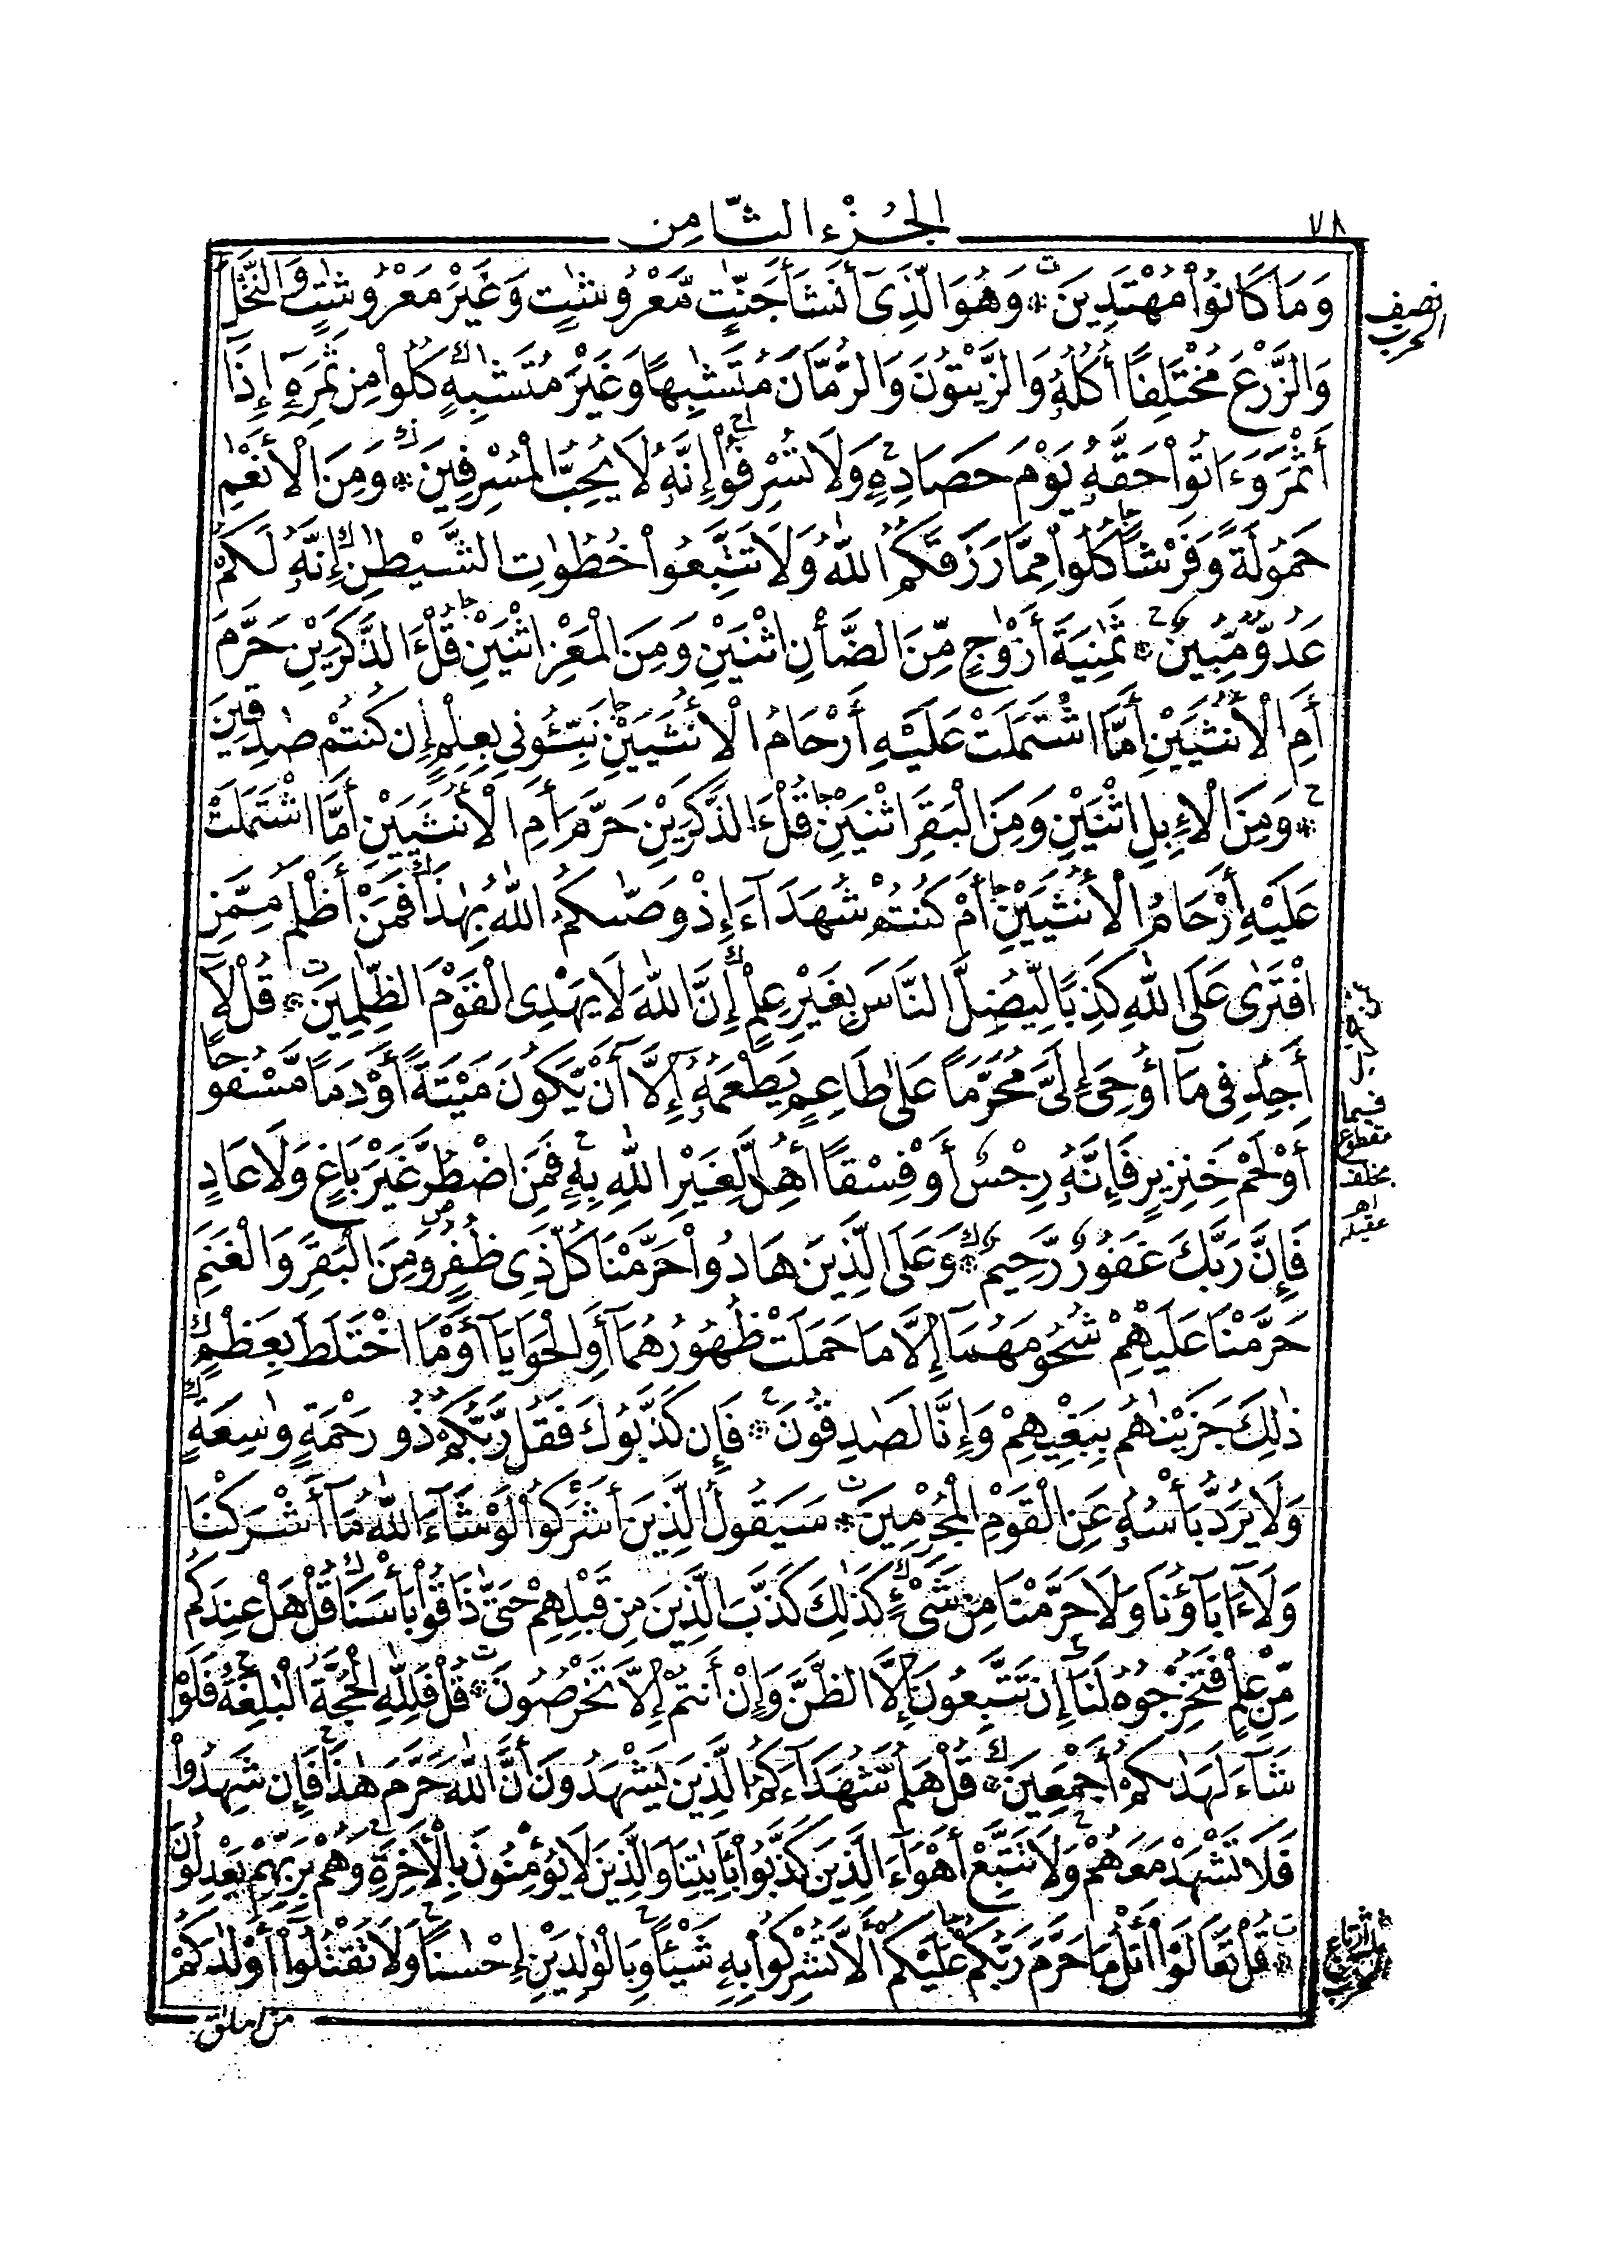 ٧٨
الجُزْءالثَّامِن
وَمَا كَانُوا۟ مُهْتَدِينَ ۞ وَهُوَ الَّذِىٓ أَنشَأَ جَنَّٰتٍ مَّعْرُوشَٰتٍ وَغَيْرَ مَعْرُوشَٰتٍ وَالنَّخْلَ
نصف الحزب
وَالزَّرْعَ مُخْتَلِفًا أُكُلُهُۥ وَالزَّيْتُونَ وَالرُّمَّانَ مُتَشَٰبِهًا وَغَيْرَ مُتَشَٰبِهٍ كُلُوا۟ مِن ثَمَرِهِۦٓ إِذَآ
أَثْمَرَ وَءَاتُوا۟ حَقَّهُۥ يَوْمَ حَصَادِهِۦ وَلَا تُسْرِفُوٓا۟ إِنَّهُۥ لَا يُحِبُّ الْمُسْرِفِينَ ۞ وَمِنَ الْأَنْعَٰمِ
حَمُولَةً وَفَرْشًا كُلُوا۟ مِمَّا رَزَقَكُمُ اللَّهُ وَلَا تَتَّبِعُوا۟ خُطُوَٰتِ الشَّيْطَٰنِ إِنَّهُۥ لَكُمْ
عَدُوٌّ مُّبِينٌ ۞ ثَمَٰنِيَةَ أَزْوَٰجٍ مِّنَ الضَّأْنِ اثْنَيْنِ وَمِنَ الْمَعْزِ اثْنَيْنِ قُلْ ءَالذَّكَرَيْنِ حَرَّمَ
أَمِ الْأُنثَيَيْنِ أَمَّا اشْتَمَلَتْ عَلَيْهِ أَرْحَامُ الْأُنثَيَيْنِ نَبِّـُٔونِى بِعِلْمٍ إِن كُنتُمْ صَٰدِقِينَ
۞ وَمِنَ الْإِبِلِ اثْنَيْنِ وَمِنَ الْبَقَرِ اثْنَيْنِ قُلْ ءَالذَّكَرَيْنِ حَرَّمَ أَمِ الْأُنثَيَيْنِ أَمَّا اشْتَمَلَتْ
عَلَيْهِ أَرْحَامُ الْأُنثَيَيْنِ أَمْ كُنتُمْ شُهَدَآءَ إِذْ وَصَّىٰكُمُ اللَّهُ بِهَٰذَا فَمَنْ أَظْلَمُ مِمَّنِ
افْتَرَىٰ عَلَى اللَّهِ كَذِبًا لِّيُضِلَّ النَّاسَ بِغَيْرِ عِلْمٍ إِنَّ اللَّهَ لَا يَهْدِى الْقَوْمَ الظَّٰلِمِينَ ۞ قُل لَّآ
أَجِدُ فِى مَآ أُوحِىَ إِلَىَّ مُحَرَّمًا عَلَىٰ طَاعِمٍ يَطْعَمُهُۥٓ إِلَّآ أَنْ يَكُونَ مَيْتَةً أَوْ دَمًا مَّسْفُوحًا
فيما
مقطوع
أَوْ لَحْمَ خِنزِيرٍ فَإِنَّهُۥ رِجْسٌ أَوْ فِسْقًا أُهِلَّ لِغَيْرِ اللَّهِ بِهِۦ فَمَنِ اضْطُرَّ غَيْرَ بَاغٍ وَلَا عَادٍ
عقيله
فَإِنَّ رَبَّكَ غَفُورٌ رَّحِيمٌ ۞ وَعَلَى الَّذِينَ هَادُوا۟ حَرَّمْنَا كُلَّ ذِى ظُفُرٍ وَمِنَ الْبَقَرِ وَالْغَنَمِ
حَرَّمْنَا عَلَيْهِمْ شُحُومَهُمَآ إِلَّا مَا حَمَلَتْ ظُهُورُهُمَآ أَوِ الْحَوَايَآ أَوْ مَا اخْتَلَطَ بِعَظْمٍ
ذَٰلِكَ جَزَيْنَٰهُم بِبَغْيِهِمْ وَإِنَّا لَصَٰدِقُونَ ۞ فَإِن كَذَّبُوكَ فَقُل رَّبُّكُمْ ذُو رَحْمَةٍ وَٰسِعَةٍ
وَلَا يُرَدُّ بَأْسُهُۥ عَنِ الْقَوْمِ الْمُجْرِمِينَ ۞ سَيَقُولُ الَّذِينَ أَشْرَكُوا۟ لَوْ شَآءَ اللَّهُ مَآ أَشْرَكْنَا
وَلَآ ءَابَآؤُنَا وَلَا حَرَّمْنَا مِن شَىْءٍ كَذَٰلِكَ كَذَّبَ الَّذِينَ مِن قَبْلِهِمْ حَتَّىٰ ذَاقُوا۟ بَأْسَنَا قُلْ هَلْ عِندَكُم
مِّنْ عِلْمٍ فَتُخْرِجُوهُ لَنَآ إِن تَتَّبِعُونَ إِلَّا الظَّنَّ وَإِنْ أَنتُمْ إِلَّا تَخْرُصُونَ ۞ قُلْ فَلِلَّهِ الْحُجَّةُ الْبَٰلِغَةُ فَلَوْ
شَآءَ لَهَدَىٰكُمْ أَجْمَعِينَ ۞ قُلْ هَلُمَّ شُهَدَآءَكُمُ الَّذِينَ يَشْهَدُونَ أَنَّ اللَّهَ حَرَّمَ هَٰذَا فَإِن شَهِدُوا۟
فَلَا تَشْهَدْ مَعَهُمْ وَلَا تَتَّبِعْ أَهْوَآءَ الَّذِينَ كَذَّبُوا۟ بِـَٔايَٰتِنَا وَالَّذِينَ لَا يُؤْمِنُونَ بِالْأَخِرَةِ وَهُم بِرَبِّهِمْ يَعْدِلُونَ
۞ قُلْ تَعَالَوْا۟ أَتْلُ مَا حَرَّمَ رَبُّكُمْ عَلَيْكُمْ أَلَّا تُشْرِكُوا۟ بِهِۦ شَيْـًٔا وَبِالْوَٰلِدَيْنِ إِحْسَٰنًا وَلَا تَقْتُلُوٓا۟ أَوْلَٰدَكُم
مِّنْ إِمْلَٰقٍ